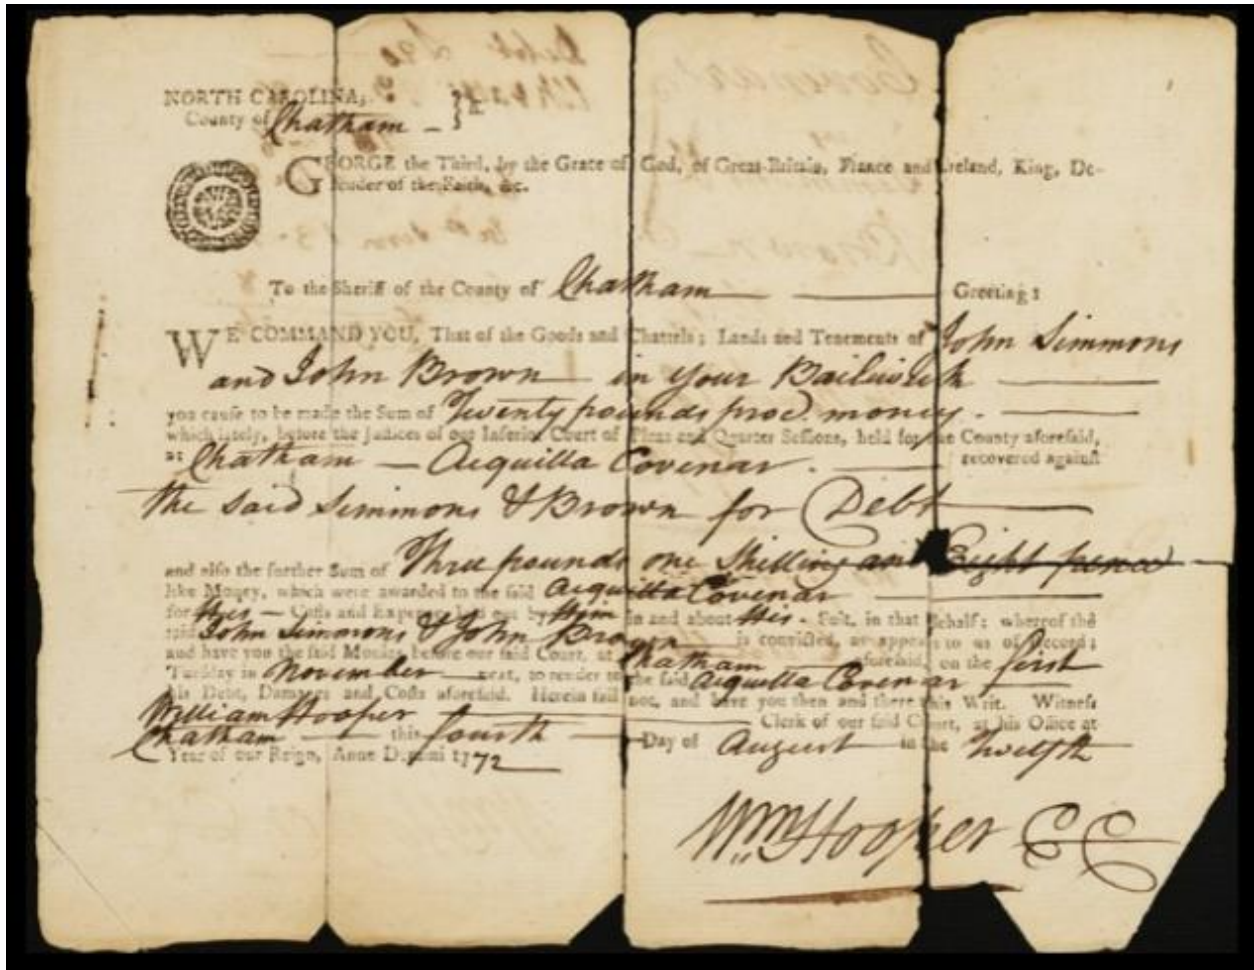 NORTH CAROLINA,
County of Chatham
GEORGE the Third, by the Grace of God, of Great-Britain, France and Ireland, King, De-
fender of the Faith, &c.
To the Sheriff of the County of Chatham Greeting:
WE COMMAND YOU, That of the Goods and Chattels; Lands and Tenements of John Simmons
and John Brown in your Bailiwick
you cause to be made the Sum of Twenty pounds proc. money.
which lately, before the Justices of our Inferior Court of Pleas and Quarter Sessions, held for the County aforesaid,
at Chatham Acquilla Covenar. recovered against
the said Simmons & Brown for Debt
and also the further Sum of Three pounds one Shilling and Eight pence
like Money, which were awarded to the said Acquilla Covenar
for His Costs and Expences laid out by Him in and about His Suit, in that Behalf; whereof the
said John Simmons & John Brown is convicted, as appears to us of Record;
and have you the said Monies, before our said Court, at Chatham aforesaid, on the first
Tuesday in November next, to render to the said Acquilla Covenar
his Debt, Damages and Costs aforesaid. Herein fail not, and have you then and there this Writ. Witness
William Hooper Clerk of our said Court, at his Office at
Chatham this fourth Day of August in the Twelfth
Year of our Reign, Anno Domini 1772
Wm Hooper CC